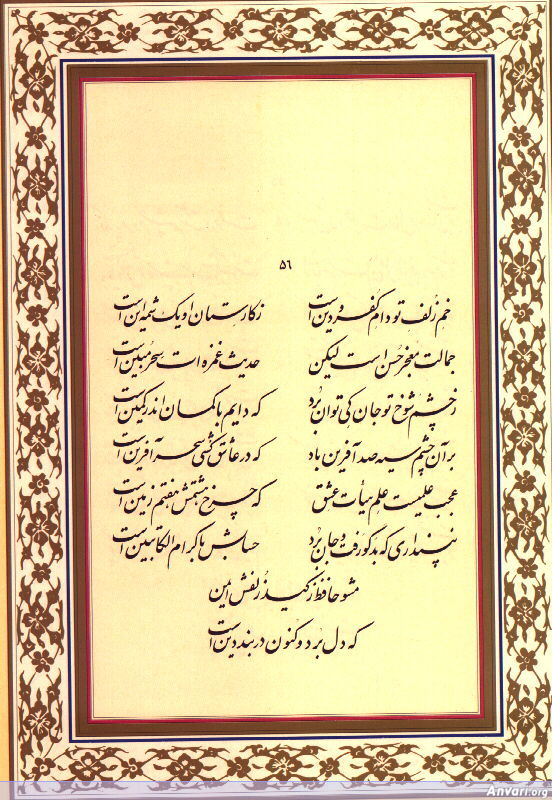 ۵۶
خم زلف تو دام کفر و دین است    ز کارستان او یک شمه این است
جمالت معجز حسن است لیکن    حدیث غمزه‌ات سحر مبین است
ز چشم شوخ تو جان کی توان برد    که دایم با کمان اندر کمین است
بر آن چشم سیه صد آفرین باد    که در عاشق کشی سحر آفرین است
عجب علمیست علم هیأت عشق    که چرخ هشتمش هفتم زمین است
تو پنداری که بدگو رفت و جان برد    حسابش با کرام الکاتبین است
مشو حافظ ز کید زلفش ایمن
که دل برد و کنون در بند دین است
Anvari.org